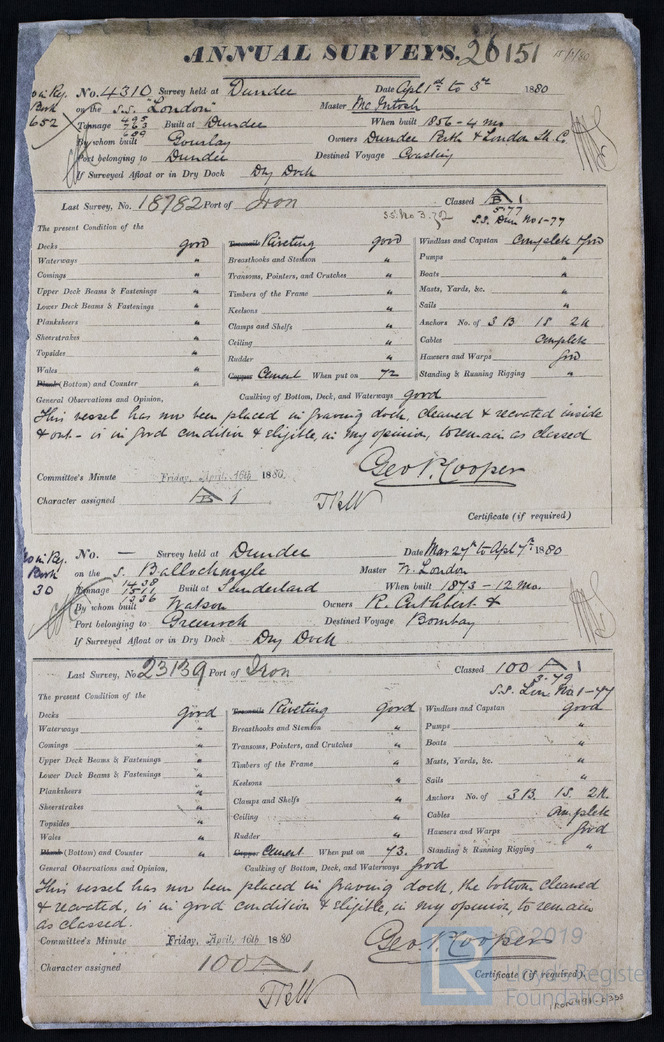 ANNUAL SURVEYS. 26151
No. 4310 Survey held at Dundee Date Apl 1st to 3rd 1880
Book on the S.S. "London" Master McIntosh
652 Tonnage 495 763 689 Built at Dundee When built 1856 - 4 mo
By whom built Gourlay Owners Dundee Perth & London Sh. Co
Port belonging to Dundee Destined Voyage Coasting
If Surveyed Afloat or in Dry Dock Dry Dock
Last Survey, No. 18782 Port of Iron Classed A 1
S.S. No 3. 72 5.77
S.S. Dun No 1-77
The present Condition of the
Decks good
Waterways "
Comings "
Upper Deck Beams & Fastenings "
Lower Deck Beams & Fastenings "
Planksheers "
Sheerstrakes "
Topsides "
Wales "
(Bottom) and Counter "
Riveting good
Breasthooks and Stemson "
Transoms, Pointers, and Crutches "
Timbers of the Frame "
Keelsons "
Clamps and Shelfs "
Ceiling "
Rudder "
Copper Cement When put on 72
Windlass and Capstan Complete & Good
Pumps "
Boats "
Masts, Yards, &c. "
Sails "
Anchors No. of 3 B 1 S 2 K
Cables Complete
Hawsers and Warps good
Standing & Running Rigging "
General Observations and Opinion, Caulking of Bottom, Deck, and Waterways good
This vessel has now been placed in graving dock, cleaned & recoated inside
& out - is in good condition & eligible, in my opinion, to remain as classed
Geo P. Cooper
Committee's Minute Friday, April 16th 1880.
Character assigned A 1
Certificate (if required)
No. — Survey held at Dundee Date Mar 27th to Apl 7th 1880
Book on the S. Ballochmyle Master W. London
30 Tonnage 1438 1511 1336 Built at Sunderland When built 1873 - 12 mo.
By whom built Watson Owners R. Cuthbert &
Port belonging to Greenock Destined Voyage Bombay
If Surveyed Afloat or in Dry Dock Dry Dock
Last Survey, No. 23139 Port of Iron Classed 100 A 1
3.79
S.S. Lon No 1-77
The present Condition of the
Decks good
Waterways "
Comings "
Upper Deck Beams & Fastenings "
Lower Deck Beams & Fastenings "
Planksheers "
Sheerstrakes "
Topsides "
Wales "
(Bottom) and Counter "
Riveting good
Breasthooks and Stemson "
Transoms, Pointers, and Crutches "
Timbers of the Frame "
Keelsons "
Clamps and Shelfs "
Ceiling "
Rudder "
Copper Cement When put on 73.
Windlass and Capstan good
Pumps "
Boats "
Masts, Yards, &c. "
Sails "
Anchors No. of 3 B. 1 S. 2 K.
Cables Complete
Hawsers and Warps good
Standing & Running Rigging "
General Observations and Opinion, Caulking of Bottom, Deck, and Waterways good
This vessel has now been placed in graving dock, the bottom cleaned
& recoated, is in good condition & eligible, in my opinion, to remain
as classed.
Geo P. Cooper
Committee's Minute Friday, April 16th 1880
Character assigned 100 A 1
Certificate (if required).
© 2019
LR
Lloyd's Register
Foundation